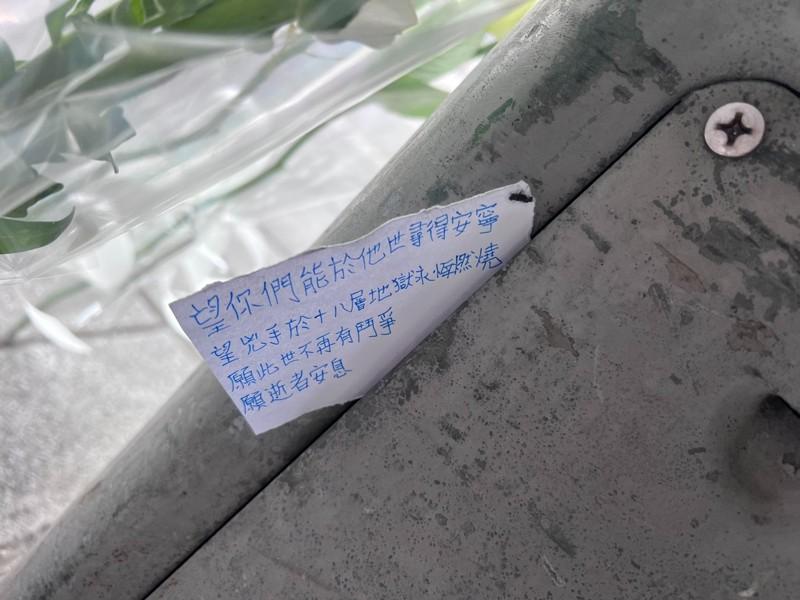 望你們能於他世尋得安寧
望兇手於十八層地獄永恆燃燒
願此世不再有鬥爭
願逝者安息